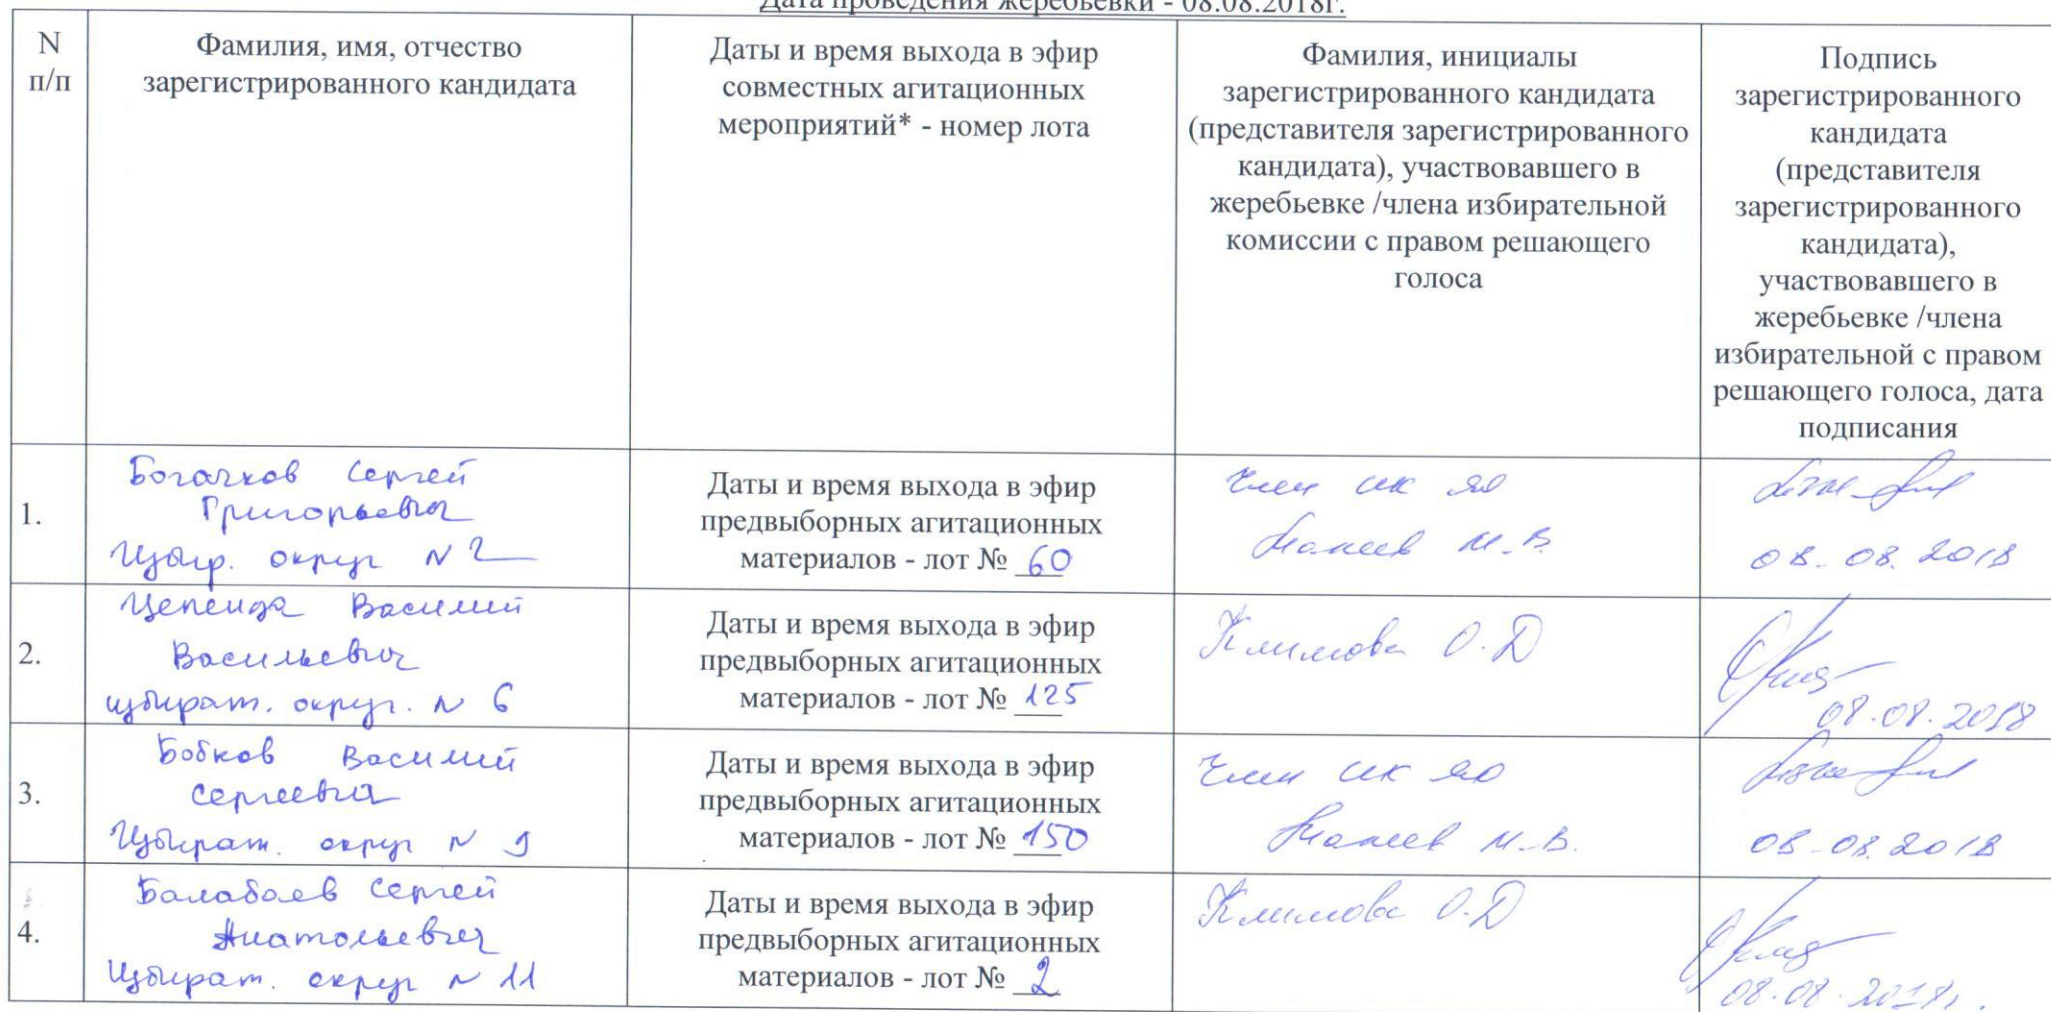 Дата проведения жеребьевки - 08.08.2018г.
N
п/п
Фамилия, имя, отчество
зарегистрированного кандидата
Даты и время выхода в эфир
совместных агитационных
мероприятий* - номер лота
Фамилия, инициалы
зарегистрированного кандидата
(представителя зарегистрированного
кандидата), участвовавшего в
жеребьевке /члена избирательной
комиссии с правом решающего
голоса
Подпись
зарегистрированного
кандидата
(представителя
зарегистрированного
кандидата),
участвовавшего в
жеребьевке /члена
избирательной с правом
решающего голоса, дата
подписания
1.
Богачков Сергей
Григорьевич
Избир. округ N 2
Даты и время выхода в эфир
предвыборных агитационных
материалов - лот № 60
Член ИК ЯО
М.В.
08.08.2018
2.
Цепенда Василий
Васильевич
избират. округ. N 6
Даты и время выхода в эфир
предвыборных агитационных
материалов - лот № 125
Климова О.Д
08.08.2018
3.
Бобков Василий
Сергеевич
Избират. округ N 9
Даты и время выхода в эфир
предвыборных агитационных
материалов - лот № 150
Член ИК ЯО
М.В.
08.08.2018
4.
Балабаев Сергей
Анатольевич
Избират. округ N 11
Даты и время выхода в эфир
предвыборных агитационных
материалов - лот № 2
Климова О.Д
08.08.2018г.